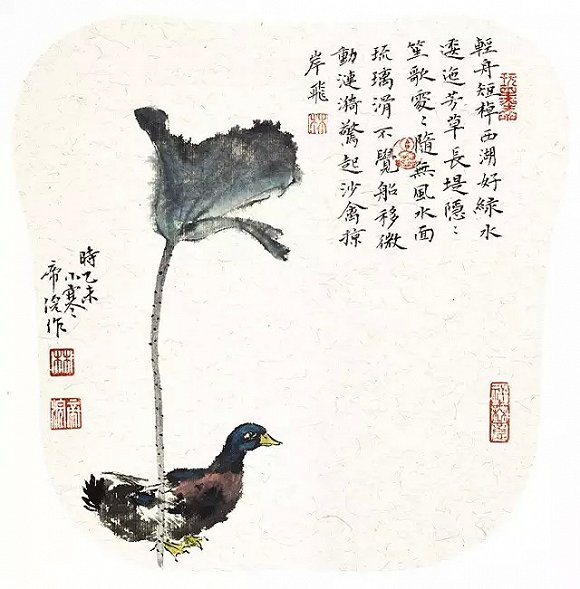 輕舟短棹西湖好綠水
逶迤芳草長堤隱〻
笙歌處〻隨無風水面
琉璃滑不覺船移微
動漣漪驚起沙禽掠
岸飛
林
時乙未
小寒
帝浣作
林